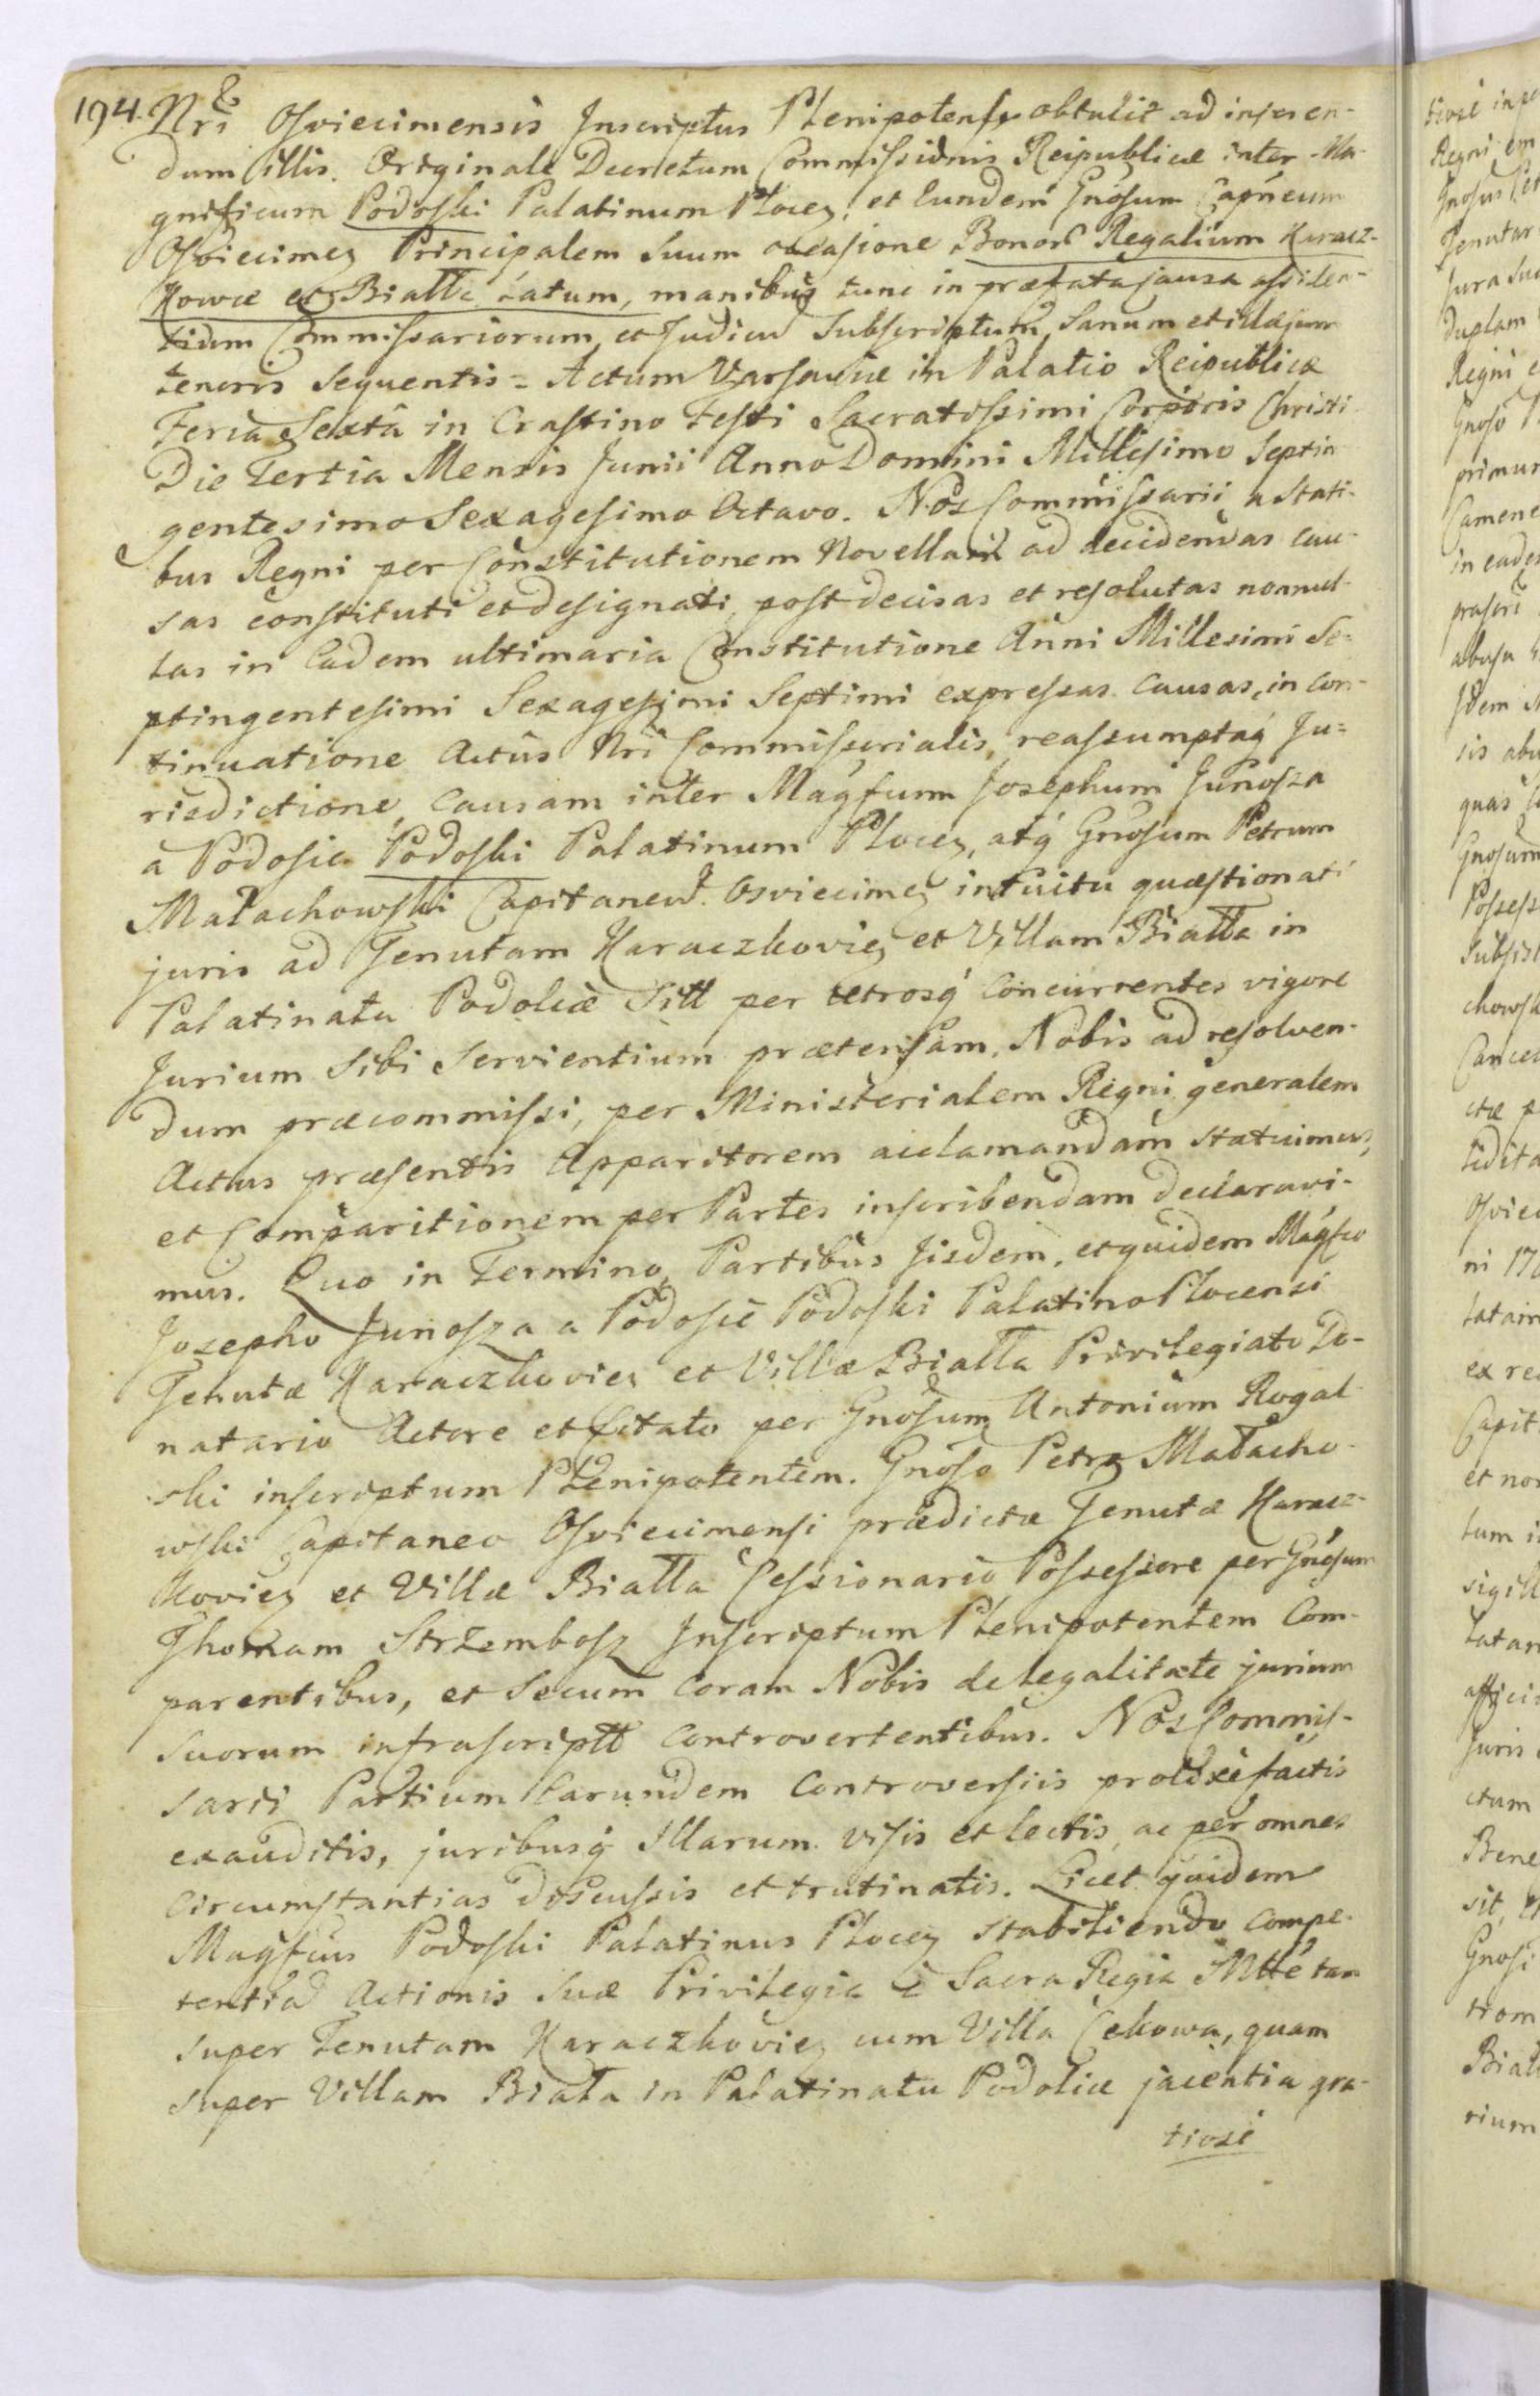 194. Nri Osviecimensis Inscriptus Plenipotens obtulit ad inseren-
dum illis. Originale Decretum Commissionis Reipublicæ inter Ma-
gnificum Podoski Palatinum Plocen, et Eundem Gnosum Capneum
Osviecimen Principalem Suum occasione Bonor Regalium Karacz-
kowce et Biatta latum, manibus tunc in præfata Causa assiden-
tium Commissariorum et Judicu Subscriptum, Sanum et illæsum
tenoris Sequentis = Actum Varsaviæ in Palatio Reipublicæ
Feria Sexta in Crastino Festi Sacratissimi Corporis Christi
Die Tertia Mensis Junii Anno Domini Millesimo Septin
gentesimo Sexagesimo Octavo. Nos Commissarii a Stati-
bus Regni per Constitutionem Novellam ad decidendas Cau-
sas constituti et designati, post decisas et resolutas nonnul-
las in Eadem ultimaria Constitutione Anni Millesimi Se-
ptingentesimi Sexagesimi Septimi expressas Causas, in Con-
tinuatione Actus Nri Commisserialis, reassumptaq Ju=
risdictione, Causam inter Magfum Josephum Junosza
a Podosie Podoski Palatinum Plocen, atq Gnosum Petrum
Małachowski Capitaneu Osviecimen intuitu quæstionati
juris ad Tenutam Karaczkoviec et Villam Biatta in
Palatinatu Podoliæ Sitt per utrosq Concurrentes vigore
Jurium Sibi Servientium prætensam, Nobis ad resolven-
dum præcommissi, per Ministerialem Regni generalem
Actus præsentis Apparitorem acclamandam statuimus,
et Comparitionem per Partes inscribendam declaravi-
mus. Quo in Termino, Partibus Jisdem, et quidem Magfco
Josepho Junosza a Podosie Podoski Palatino Plocensi
Tenutæ Karaczkoviec et Villæ Biatta Privilegiato Do-
natario Actore et Citato per Gnosum Antonium Rogal
ski inscriptum Plenipotentem. Gnoso Petro Małacho-
wski Capitaneo Osviecimensi prædictæ Tenutæ Karacz-
koviec et Villæ Biatta Cessionario Possessore per Gnosum
Thomam Strzembosz Inscriptum Plenipotentem Com-
parentibus, et Secum Coram Nobis de legalitate jurium
Suorum infrascriptt Controvertentibus. Nos Commis-
sarii Partium Earundem Controversiis prolixe factis
exauditis, juribusq Illarum visis et lectis, ac per omnes
Circumstantias discussis et trutinatis. Licet quidem
Magfcus Podoski Palatinus Plocen Stabiliendo Compe-
tentia Actionis Suæ Privilegia a Sacra Regia Mtte tam
super Tenutam Karaczkoviec cum Villa Cekowa, quam
super Villam Biała in Palatinatu Podoliæ jacentia gra-
tiose